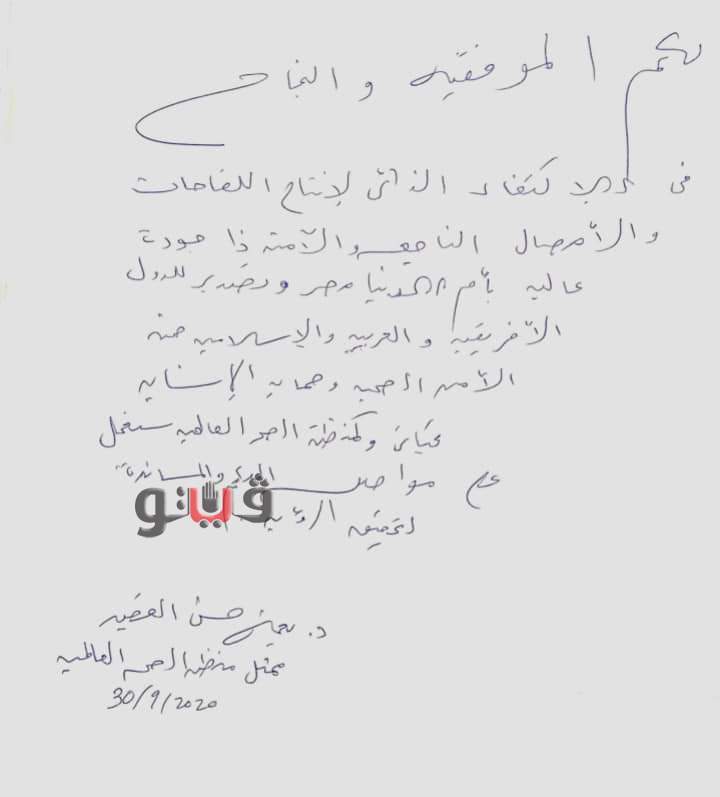 لكم الموفقيه والنجاح
في الاكتفاء الذاتي لإنتاج اللقاحات
والأمصال الناجعه والآمنة ذا جودة
عاليه بأم الدنيا مصر وتصدير للدول
الأفريقية والعربية والإسلاميه
الأمن الصحي وحماية الإنسانية
وكمنظمة الصحة العالميه سنعمل
على مواصلة الدعم والمساندة
لتحقيق
ڤيتو
د. نعيمة حسن القصير
ممثل منظمة الصحة العالميه
30/9/2020